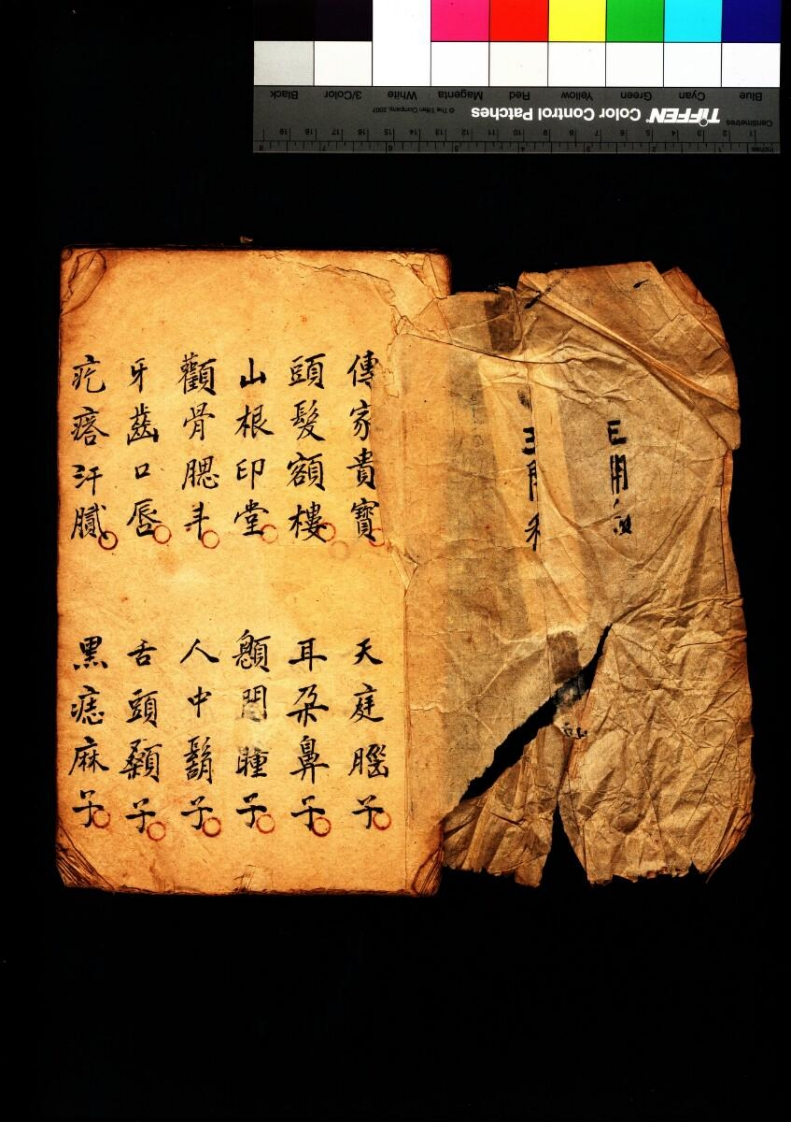 Blue Cyan Green Yellow Red Magenta White 3/Color Black
TIFFEN Color Control Patches
© The Tiffen Company, 2007
Centimetres
Inches
傳家貴寶 天庭腦子
頭髮額樓 耳朵鼻子
山根印堂 間瞳子
顴骨腮 人中鬍子
牙齒口唇 舌頭子
疙瘩汗膩 黑痣麻子